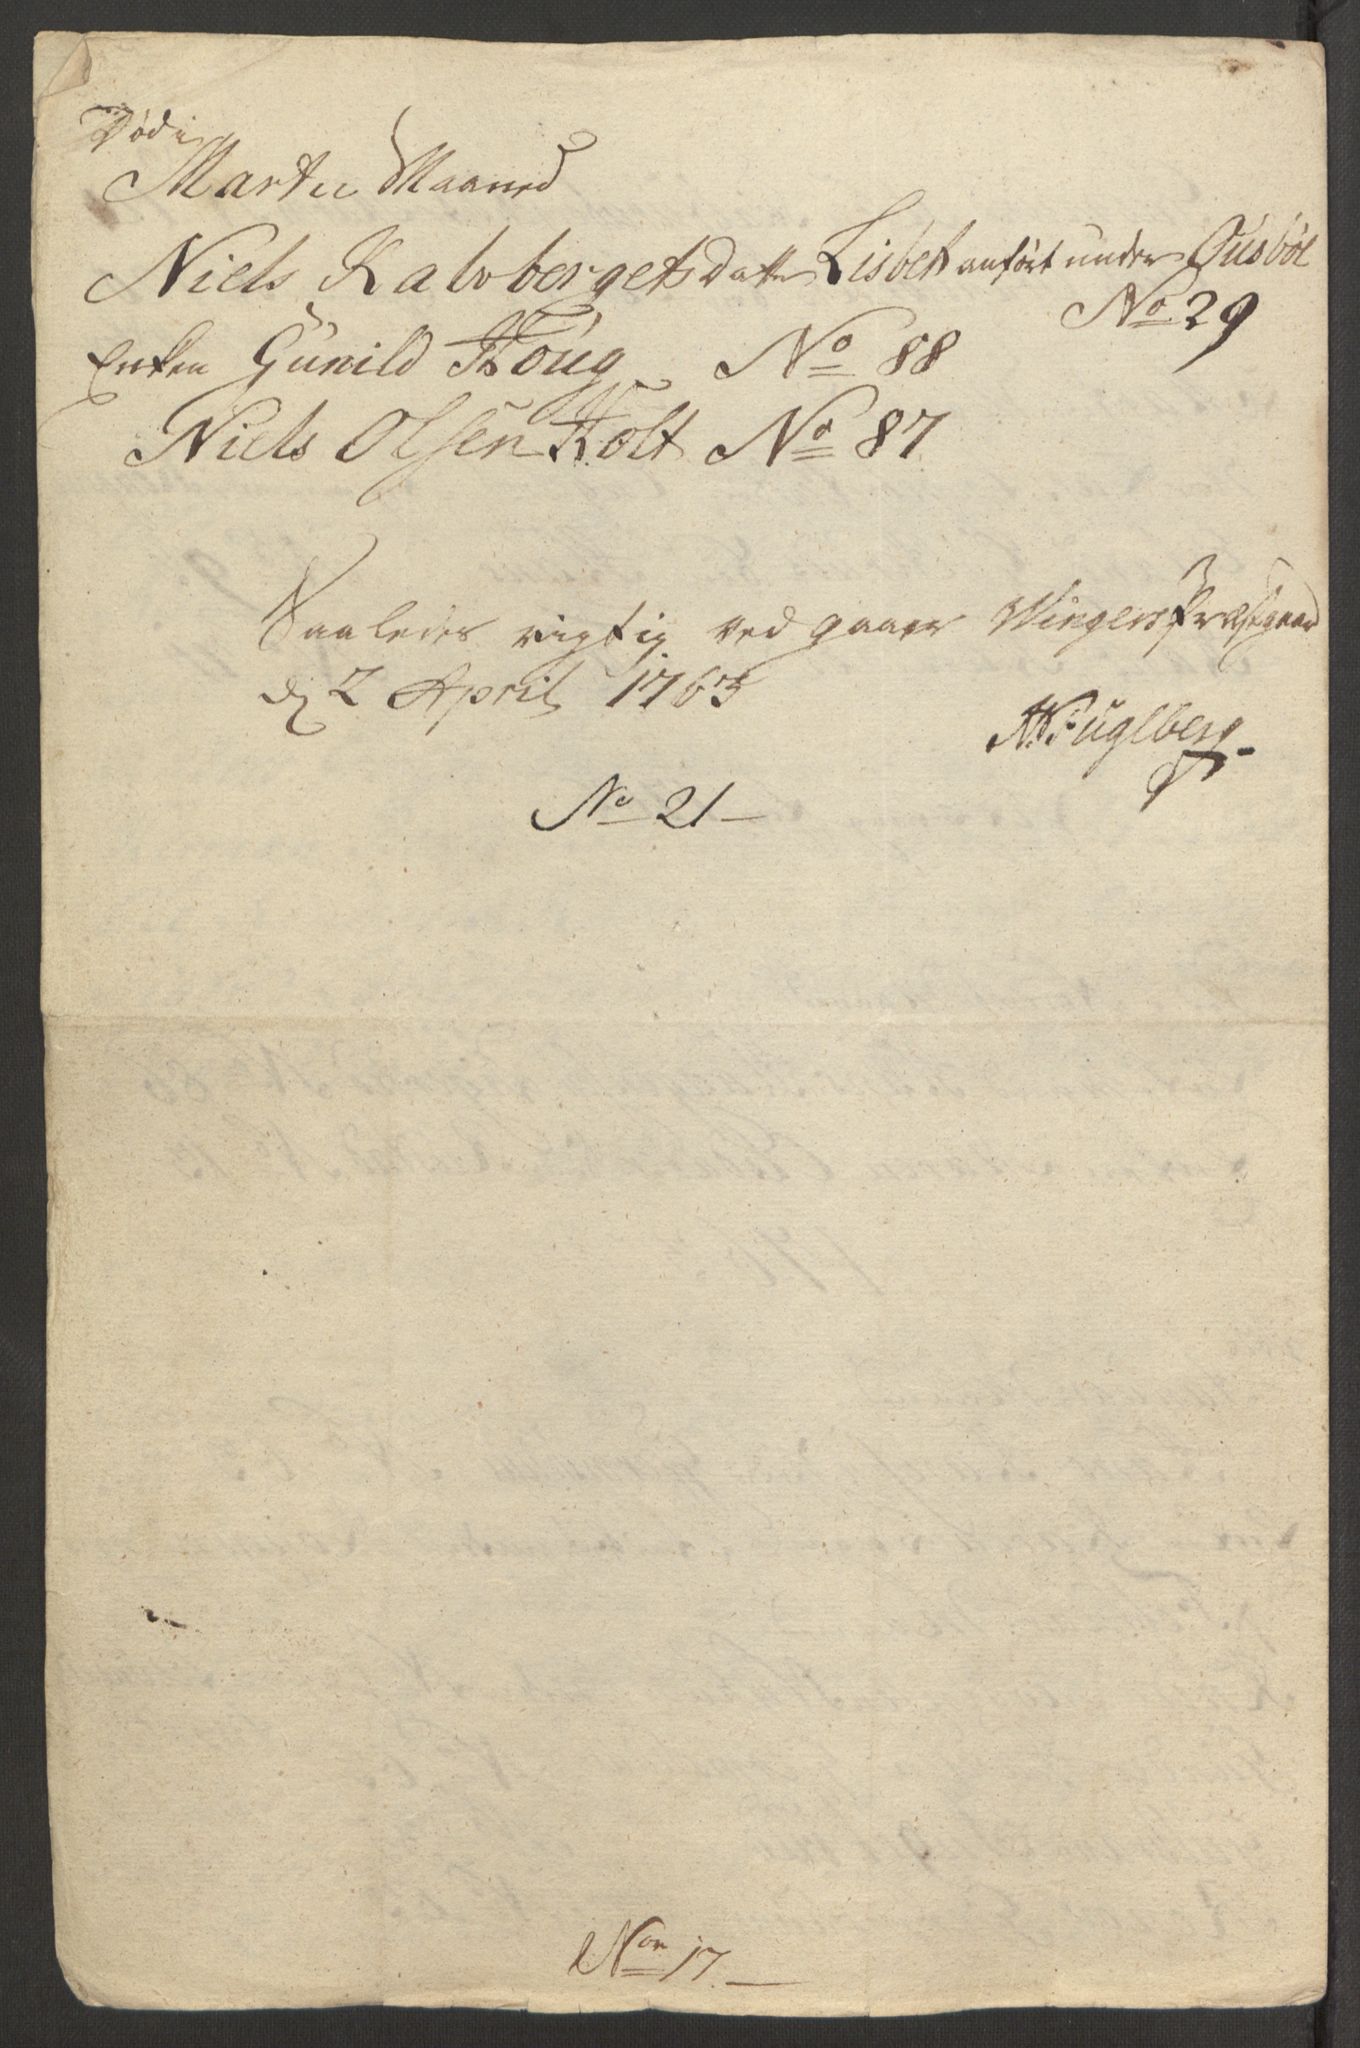 Død i
Martii Maaned
Niels Kalvbergets Datter Lisbeth anført under Ousbøl
No 29
Enken Gunild Houg No 88
Niels Olsen Holt No 87
Saaledes rigtig ved gaaer Wingers Præstgaard
d 2 April 1763
N Fuglberg
No 21
Nor 17